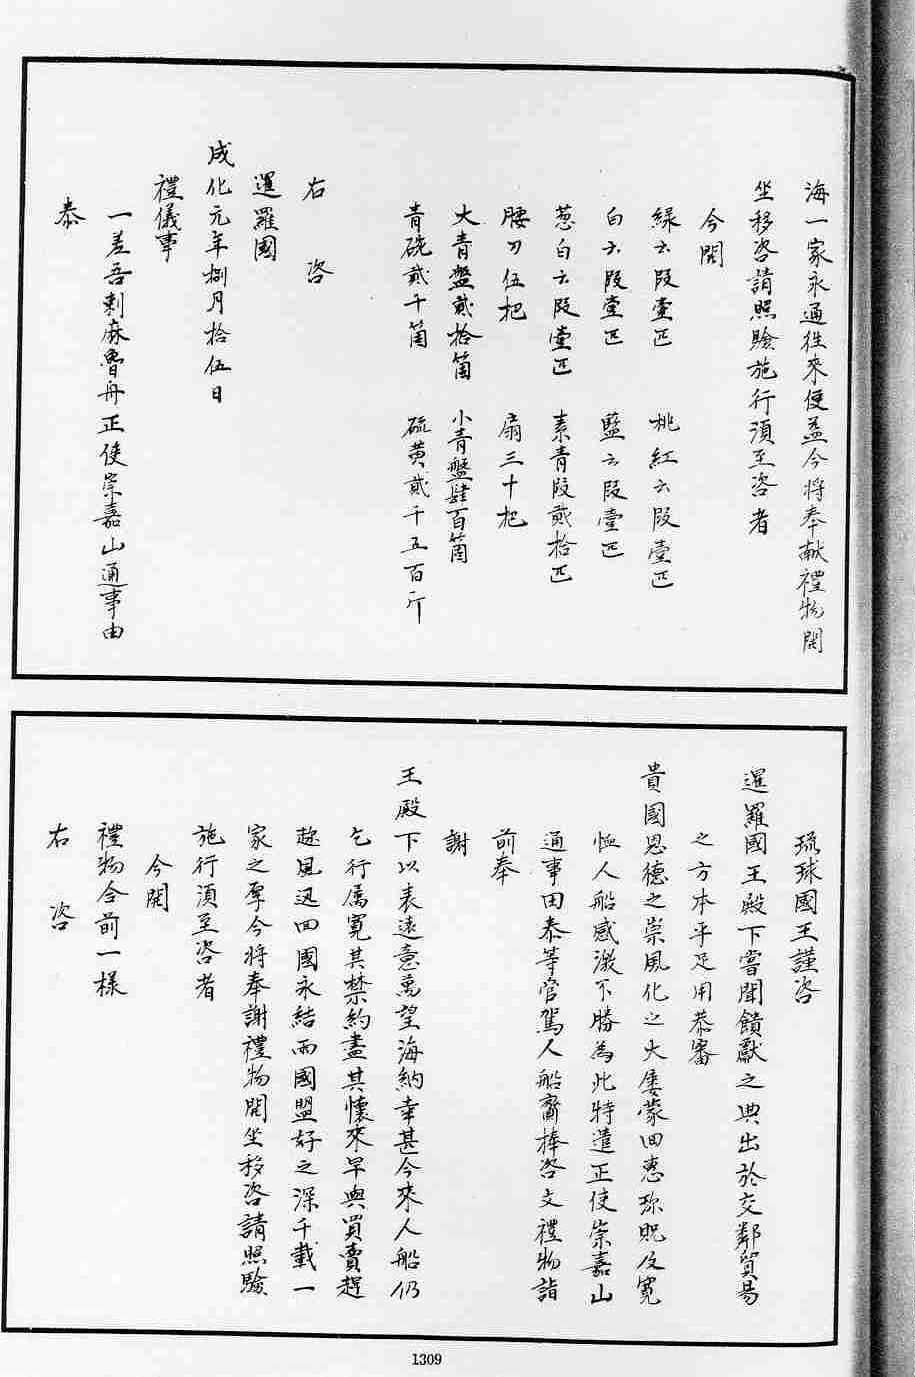 海一家永通徃來使益今將奉献禮物開
坐移咨請照驗施行須至咨者
今開
緑云段壹匹 桃紅云段壹匹
白云段壹匹 藍云段壹匹
葱白云段壹匹 素青段貳拾匹
腰刀伍把 扇三十把
大青盤貳拾箇 小青盤肆百箇
青硗貳千箇 硫黄貳千五百斤
右 咨
暹羅國
成化元年捌月拾伍日
禮儀事
一差吾剌麻魯舟正使崇嘉山通事由
泰
琉球國王謹咨
暹羅國王殿下嘗聞饋獻之典出於交鄰貿易
之方本乎足用恭審
貴國恩德之崇風化之大屡蒙回惠珎貺及寛
恤人船感激不勝為此特遣正使崇嘉山
通事田泰等管駕人船齎捧咨文禮物詣
前奉
謝
王殿下以表遠意萬望海納幸甚今來人船仍
乞行属寛其禁約盡其懐來早與買賣趕
趂風迅回國永結両國盟好之深千載一
家之厚今將奉謝禮物開坐移咨請照驗
施行須至咨者
今開
禮物合前一様
右 咨
1309